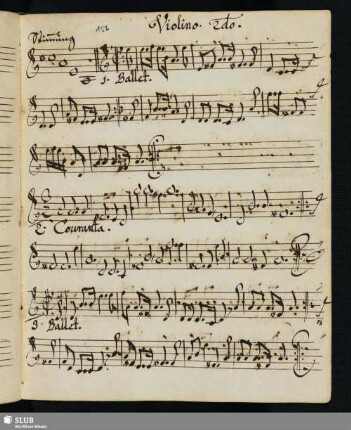 Violino. 2do.
Stimung
1. Ballet.
2. Couranta.
3. Ballet.
SLUB
Wir führen Wissen.